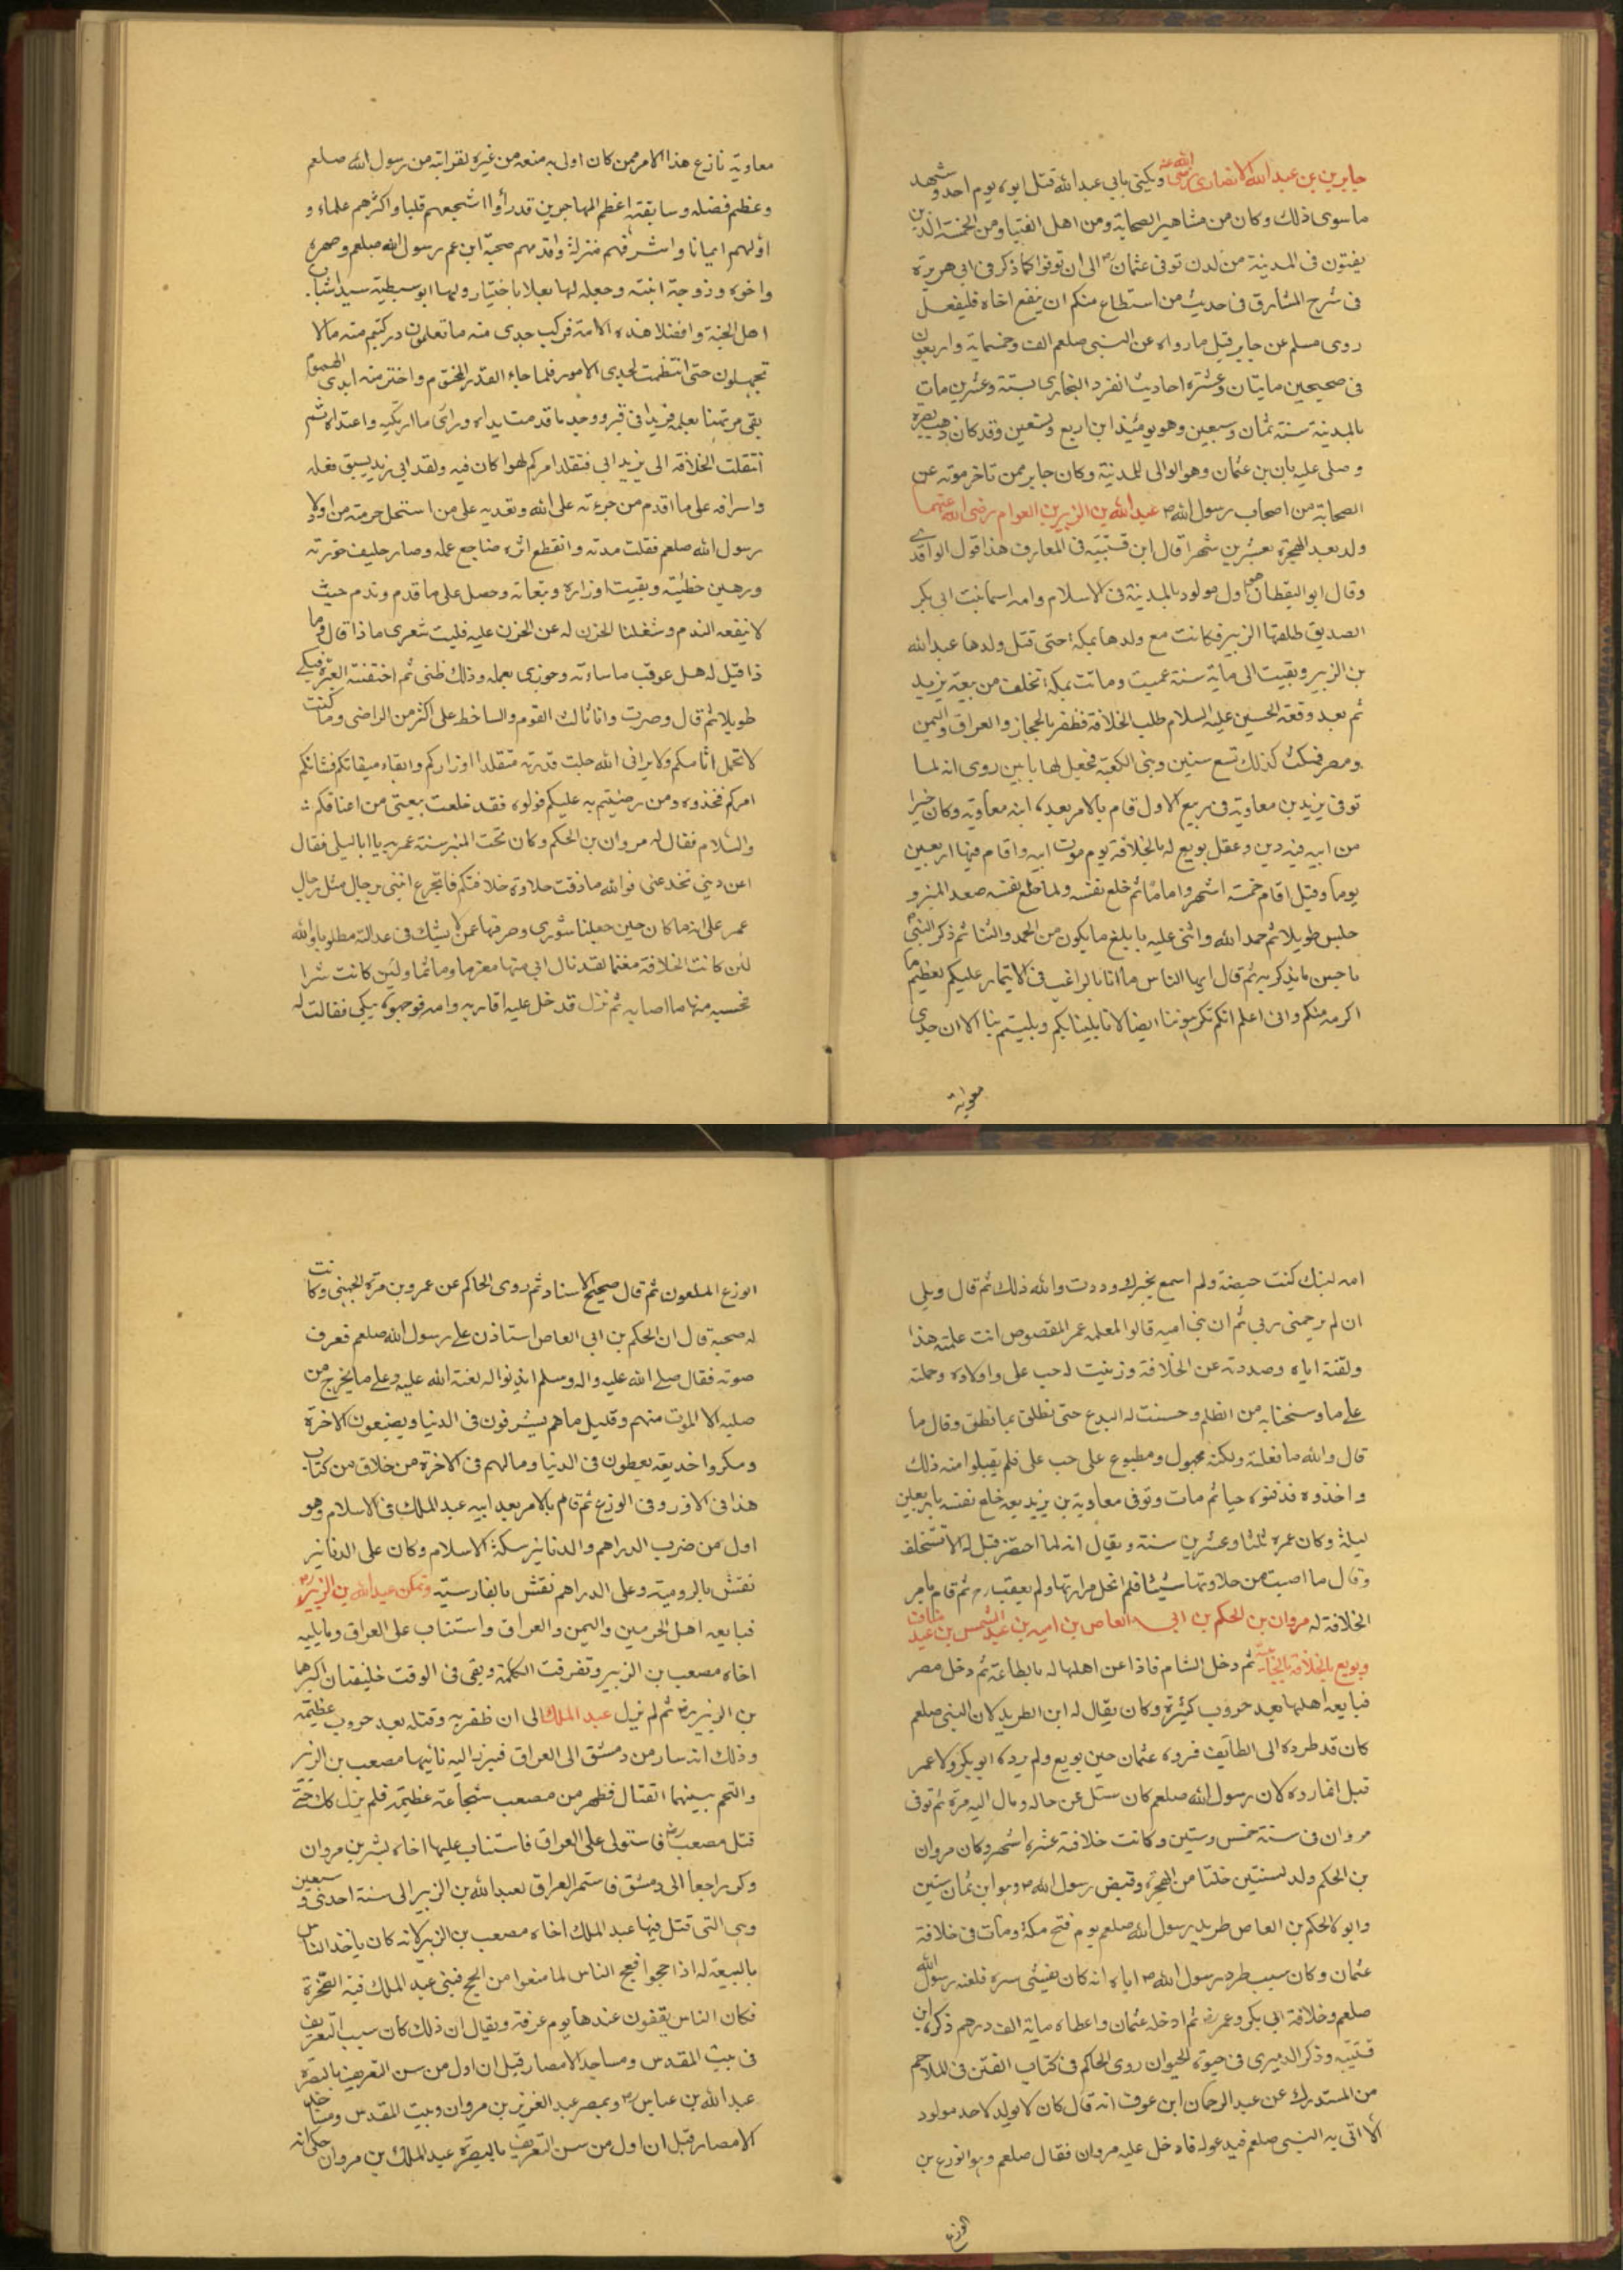 جابر بن عبد الله الانصارى رضى الله عنه ويكنى بابى عبد الله قتل ابوه يوم احد وشهد
ما سوى ذلك وكان من مشاهير الصحابة ومن اهل الفتيا ومن الخمسة الذين
يفتون فى المدينة من لدن توفى عثمان رض الى ان توفوا كما ذكر فى ابى هريرة
فى شرح المشارق فى حديث من استطاع منكم ان ينفع اخاه فليفعل
روى مسلم عن جابر قيل ما رواه عن النبى صلعم الف وخمسماية واربعون
فى صحيحين مايتان وعشرة احاديث انفرد البخارى بستة وعشرين مات
بالمدينة سنة ثمان وسبعين وهو يومئذ ابن اربع وتسعين وقد كان ذهب بصره
وصلى عليه ابان بن عثمان وهو الوالى للمدينة وكان جابر ممن تاخر موته عن
الصحابة من اصحاب رسول الله ص عبد الله بن الزبير بن العوام رضى الله عنهما
ولد بعد الهجرة بعشرين شهرا قال ابن قتيبه فى المعارف هذا قول الواقدى
وقال ابو اليقظان هو اول مولود بالمدينة فى الاسلام وامه اسما بنت ابى بكر
الصديق طلقها الزبير فكانت مع ولدها بمكة حتى قتل ولدها عبد الله
بن الزبير وبقيت الى ماية سنة عميت وماتت بمكة تخلف من بيعة يزيد
ثم بعد وقعة الحسين عليه السلام طلب الخلافة فظفر بالحجاز والعراق واليمن
ومصر فمكث كذلك تسع سنين وبنى الكعبة فجعل لها بابين روى انه لما
توفى يزيد بن معاوية فى ربيع الاول قام بالامر بعده ابنه معاوية وكان خيرا
من ابيه فيه دين وعقل بويع له بالخلافة يوم موت ابيه واقام فيها اربعين
يوما وقيل اقام خمسة اشهر واياما ثم خلع نفسه ولما خلع نفسه صعد المنبر و
جلس طويلا ثم حمد الله واثنى عليه بابلغ ما يكون من الحمد والثنا ثم ذكر النبى ص
باحسن ما يذكر به ثم قال ايها الناس ما انا بالراغب فى الايتمار عليكم لعظيم ما
اكرهه منكم وانى اعلم انكم تكرهوننا ايضا لانا بلينا بكم وبليتم بنا الا ان جدى
معوية
معاوية نازع هذا الامر من كان اولى به منه ومن غيره لقرابته من رسول الله صلعم
وعظم فضله وسابقته اعظم المهاجرين قدرا واشجعهم قلبا واكثرهم علما و
اولهم ايمانا واشرفهم منزلة واقدمهم صحبة ابن عم رسول الله صلعم وصهره
واخوه وزوجه ابنته وجعله لها بعلا باختياره لها ابو سبطيه سيدا شباب
اهل الجنة وافضلا هذه الامة فركب جدى منه ما تعلمون وركبتم منه ما لا
تجهلون حتى انتظمت لجدى الامور فلما جاء القدر المحتوم واخترمته ايدى الهموم
بقى مرتهنا بعمله فريدا فى قبره ووجد ما قدمت يداه وراى ما ارتكبه واعتداه ثم
انتقلت الخلافة الى يزيد ابى فتقلد امركم لهوا كان فيه ولقد ابى يزيد بسبق فعله
واسرافه على ما اقدم من جرءته على الله وتعديه على من استحل حرمته من اولاد
رسول الله صلعم فقلت مدته وانقطع اثره ضاجع عمله وصار حليف حفرته
ورهين خطيئته وبقيت اوزاره وتبعاته وحصل على ما قدم وندم حيث
لا ينفعه الندم وشغلنا الحزن له عن الحزن عليه فليت شعرى ماذا قال وما
ذا قيل له هل عوقب باساءته وجوزى بعمله وذلك ظنى ثم اختنقته العبرة فبكى
طويلا ثم قال وصرت وانا ثالث القوم والساخط على اكثر من الراضى وما كنت
لا تحمل اثامكم ولا يرانى الله جلت قدرته متقلدا اوزاركم والقاه بتبعاتكم فشانكم
امركم فخذوه ومن رضيتم به عليكم فولوه فقد خلعت بيعتى من اعناقكم
والسلام فقال له مروان بن الحكم وكان تحت المنبر سنة عمرية يا ابا ليلى فقال
اعن دينى تخدعنى فوالله ما ذقت حلاوة خلافتكم فاتجرع ايتنى برجال مثل رجال
عمر على انه ما كان حين جعلها شورى وصرفها عمن لا يشك فى عدالته مظلوما والله
لئن كانت الخلافة مغنما لقد نال ابى منها مغرما وماثما ولئن كانت شرا
فحسبه منها ما اصابه ثم نزل فدخل عليه اقاربه وامه فوجدوه يبكى فقالت له
امه ليتك كنت حيضة ولم اسمع بخبرك وددت والله ذلك ثم قال ويلى
ان لم يرحمنى ربى ثم ان بنى اميه قالوا لمعلمه عمر المقصوص انت علمته هذا
ولقنته اياه وصددته عن الخلافة وزينت له حب على واولاده وحملته
على ما وسمنا به من الظلم وحسنت له البدع حتى نطق بما نطق وقال ما
قال والله ما فعلته ولكنه مجبول ومطبوع على حب على فلم يقبلوا منه ذلك
واخذوه فدفنوه حيا ثم مات وتوفى معاوية بن يزيد بعد خلع نفسه باربعين
ليلة وكان عمره ثلثا وعشرين سنة ويقال انه لما احتضر قيل له الا تستخلف
وقال ما اصبت من حلاوتها شيئا فلم اتحمل مرارتها ولم يعقب رح ثم قام بامر
الخلافة له مروان بن الحكم بن ابى العاص بن اميه بن عبد الشمس بن عبد مناف
وبويع بالخلافة بالجابية ثم دخل الشام فاذا عن اهلها له بالطاعة ثم دخل مصر
فبايعه اهلها بعد حروب كثيرة وكان يقال له ابن الطريد لان النبى صلعم
كان قد طرده الى الطائف فرده عثمان حين بويع ولم يرده ابو بكر ولا عمر
قيل انما رده لان رسول الله صلعم كان سئل عن حاله ومال اليه مرة ثم توفى
مروان فى سنة خمس وستين وكانت خلافته عشرة اشهر وكان مروان
بن الحكم ولد لسنتين خلتا من الهجرة وقبض رسول الله ص وهو ابن ثمان سنين
وابوه الحكم بن العاص طريد رسول الله صلعم يوم فتح مكة ومات فى خلافة
عثمان وكان سبب طرد رسول الله ص اياه انه كان يفشى سره فلعنه رسول الله
صلعم وخلافة ابى بكر وعمر رض ثم ادخله عثمان واعطاه ماية الف درهم ذكره ابن
قتيبه وذكر الدميرى فى حيوة الحيوان روى الحاكم فى كتاب الفتن فى الملاحم
من المستدرك عن عبد الرحمان ابن عوف انه قال كان لا يولد لاحد مولود
الا اتى به النبى صلعم فيدعو له فادخل عليه مروان فقال صلعم وهو الوزغ بن
الوزغ
الوزغ الملعون ثم قال صحيح الاسناد ثم روى الحاكم عن عمرو بن مرة الجهنى وكانت
له صحبة قال ان الحكم بن ابى العاص استاذن على رسول الله صلعم فعرف
صوته فقال صلى الله عليه واله وسلم ايذنوا له لعنة الله عليه وعلى ما يخرج من
صلبه الا المومن منهم وقليل ما هم يشرفون فى الدنيا ويضيعون الاخرة
ومكروا خديعة يعطون فى الدنيا وما لهم فى الاخرة من خلاق من كتاب
هذا فى الاوزر وفى الوزغ ثم قام بالامر بعد ابيه عبد الملك فى الاسلام وهو
اول من ضرب الدراهم والدنانير سكة الاسلام وكان على الدنانير
نقش بالرومية وعلى الدراهم نقش بالفارسية وتمكن عبد الله بن الزبير رض
فبايعه اهل الحرمين واليمن والعراق واستناب على العراق وما يليه
اخاه مصعب بن الزبير وتفرقت الكلمة وبقى فى الوقت خليفتان اكبرهما
بن الزبير رض ثم لم يزل عبد الملك الى ان ظفر به وقتله بعد حروب عظيمة
وذلك انه سار من دمشق الى العراق فبرز اليه نائبها مصعب بن الزبير
والتحم بينهما القتال فظهر من مصعب شجاعة عظيمة فلم يزل كذلك حتى
قتل مصعب رض فاستولى على العراق فاستناب عليها اخاه بشر بن مروان
وكر راجعا الى دمشق فاستمر العراق لعبد الله بن الزبير الى سنة احدى و سبعين
وهى التى قتل فيها عبد الملك اخاه مصعب بن الزبير لانه كان ياخذ الناس
بالبيعة له اذا حجوا فضج الناس لما منعوا من الحج فبنى عبد الملك قبة الصخرة
فكان الناس يقفون عندها يوم عرفة ويقال ان ذلك كان سبب التعريف
فى بيت المقدس ومساجد الامصار قيل ان اول من سن التعريف بالبصرة
عبد الله بن عباس رض وبمصر عبد العزيز بن مروان وبيت المقدس ومساجد
الامصار قيل ان اول من سن التعريف بالبصرة عبد الملك بن مروان حكى انه